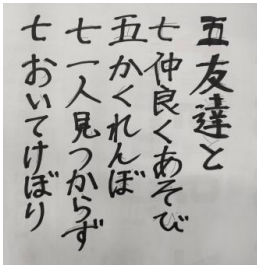 五 友達と
七 仲良くあそび
五 かくれんぼ
七 一人見つからず
七 おいてけぼり